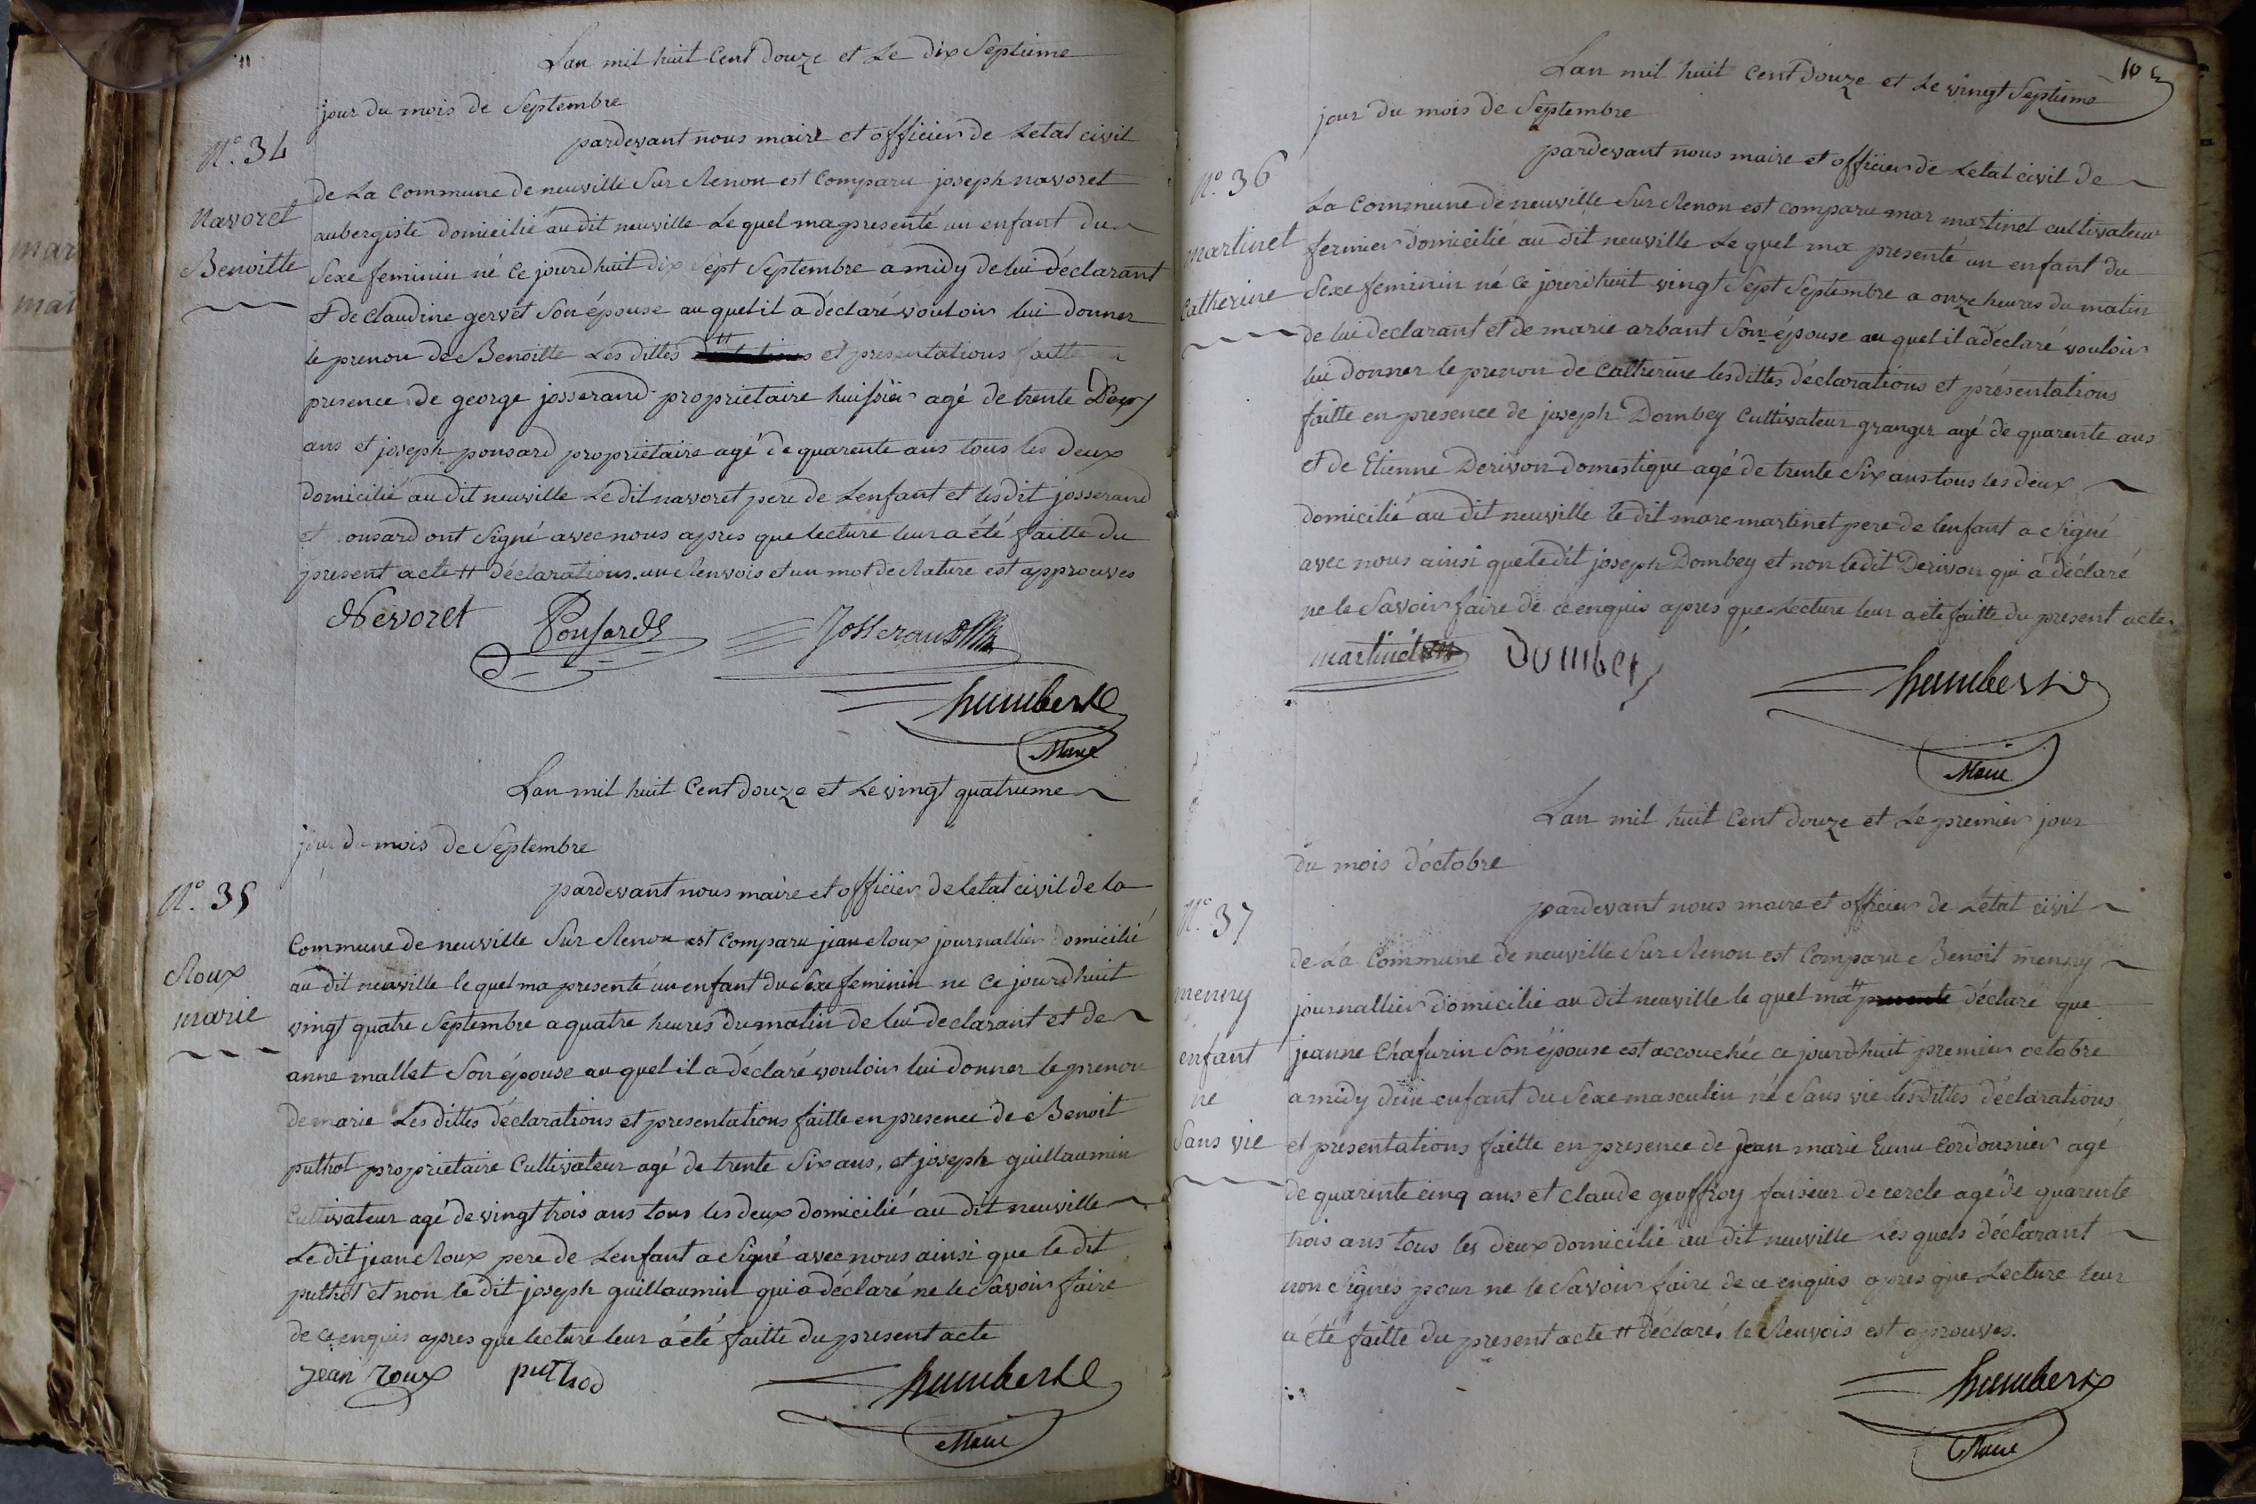 Lan mil huit Cent Douze et Le dix Septieme
jour du mois de Septembre
pardevant nous maire et officier de Letat civil
N.° 34
de La Commune de neuville Sur Renon est Comparu joseph navoret
Navoret
aubergiste domicilié au dit neuville Le quel ma presenté un enfant du
Benoitte
Sexe feminin né Ce jourdhuit dix Sept Septembre a midy de lui déclarant
et de Claudine gervet Son épouse au quel il a déclaré vouloir lui donner
le prenon de Benoitte Les dittes # et presentations faitte
presence de george josserand proprietaire huissier agé de trente Deux
ans et joseph ponsard proprietaire agé de quarente ans tous les deux
domicilié au dit neuville Ledit navoret pere de Lenfant et lesdit josserand
et ponsard ont Signé avec nous apres que lecture leur a été faitte du
present acte # déclarations. un Renvois et un mot de Rature est approuves
Nevoret Ponsard Josserand
humbert
Maire
Lan mil huit Cent douze et Le vingt quatrieme
jour du mois de Septembre
pardevant nous maire et officier de letat civil de la
N.° 35
Commune de neuville Sur Renon est Comparu jean Roux journallier domicilié
Roux
au dit neuville le quel ma presenté un enfant du Sexe feminin ne Ce jourdhuit
marie
vingt quatre Septembre a quatre heures du matin de lui declarant et de
anne mallet Son épouse au quel il a déclaré vouloir lui donner le prenon
de marie Les dittes déclarations et presentations faitte en presence de Benoit
puthot proprietaire Cultivateur agé de trente Six ans, et joseph guillaumin
Cultivateur agé de vingt trois ans tous les deux domicilié au dit neuville
Le dit jean Roux pere de Lenfant a Signé avec nous ainsi que le dit
puthot et non le dit joseph guillaumin qui a déclaré ne le Savoir faire
de ce enquis apres que lecture leur a été faitte du present acte
jean roux puthod
humbert
Maire
10
Lan mil huit Cent douze et Le vingt Septieme
jour du mois de Septembre
pardevant nous maire et officier de Letat civil de
N.° 36
La Commune de neuville Sur Renon est comparu mar martinet cultivateur
martinet
fermier domicilié au dit neuville Le quel ma presenté un enfant du
Catherine
Sexe feminin né Ce jourdhuit vingt Sept Septembre a onze heures du matin
de lui declarant et de marie arbant Son épouse au quel il a déclaré vouloir
lui donner le prenon de Catherine lesdittes déclarations et présentations
faitte en presence de joseph Dombey Cultivateur granger agé de quarente ans
et de Etienne Derivon domestique agé de trente Six ans tous les deux
domicilié au dit neuville le dit marc martinet pere de lenfant a Signé
avec nous ainsi que le dit joseph Dombey et non ledit Derivon qui a déclaré
ne le Savoir faire de ce enquis apres que Lecture leur a été faitte du present acte
martinet Dumbey
humbert
Maire
Lan mil huit Cent douze et Le premier jour
du mois d'octobre
pardevant nous maire et officier de Letat civil
N.° 37
de La Commune de neuville Sur Renon est Comparu Benoit menny
menny
journallier domicilié au dit neuville le quel ma # presenté déclaré que
enfant
jeanne Chafurin Son épouse est accouchée ce jourdhuit premier octobre
né
a midy d'un enfant du Sexe masculin né Sans vie lesdittes déclarations
Sans vie
et presentations faitte en presence de jean marie Cordounier agé
de quarente cinq ans et Claude geoffroy faiseur de cercle agé de quarente
trois ans tous les deux domicilié au dit neuville Les quels déclarant
non Signés pour ne le Savoir faire de ce enquis apres que Lecture leur
a été faitte du present acte # déclaré, le Renvois est aprouves.
humbert
Maire